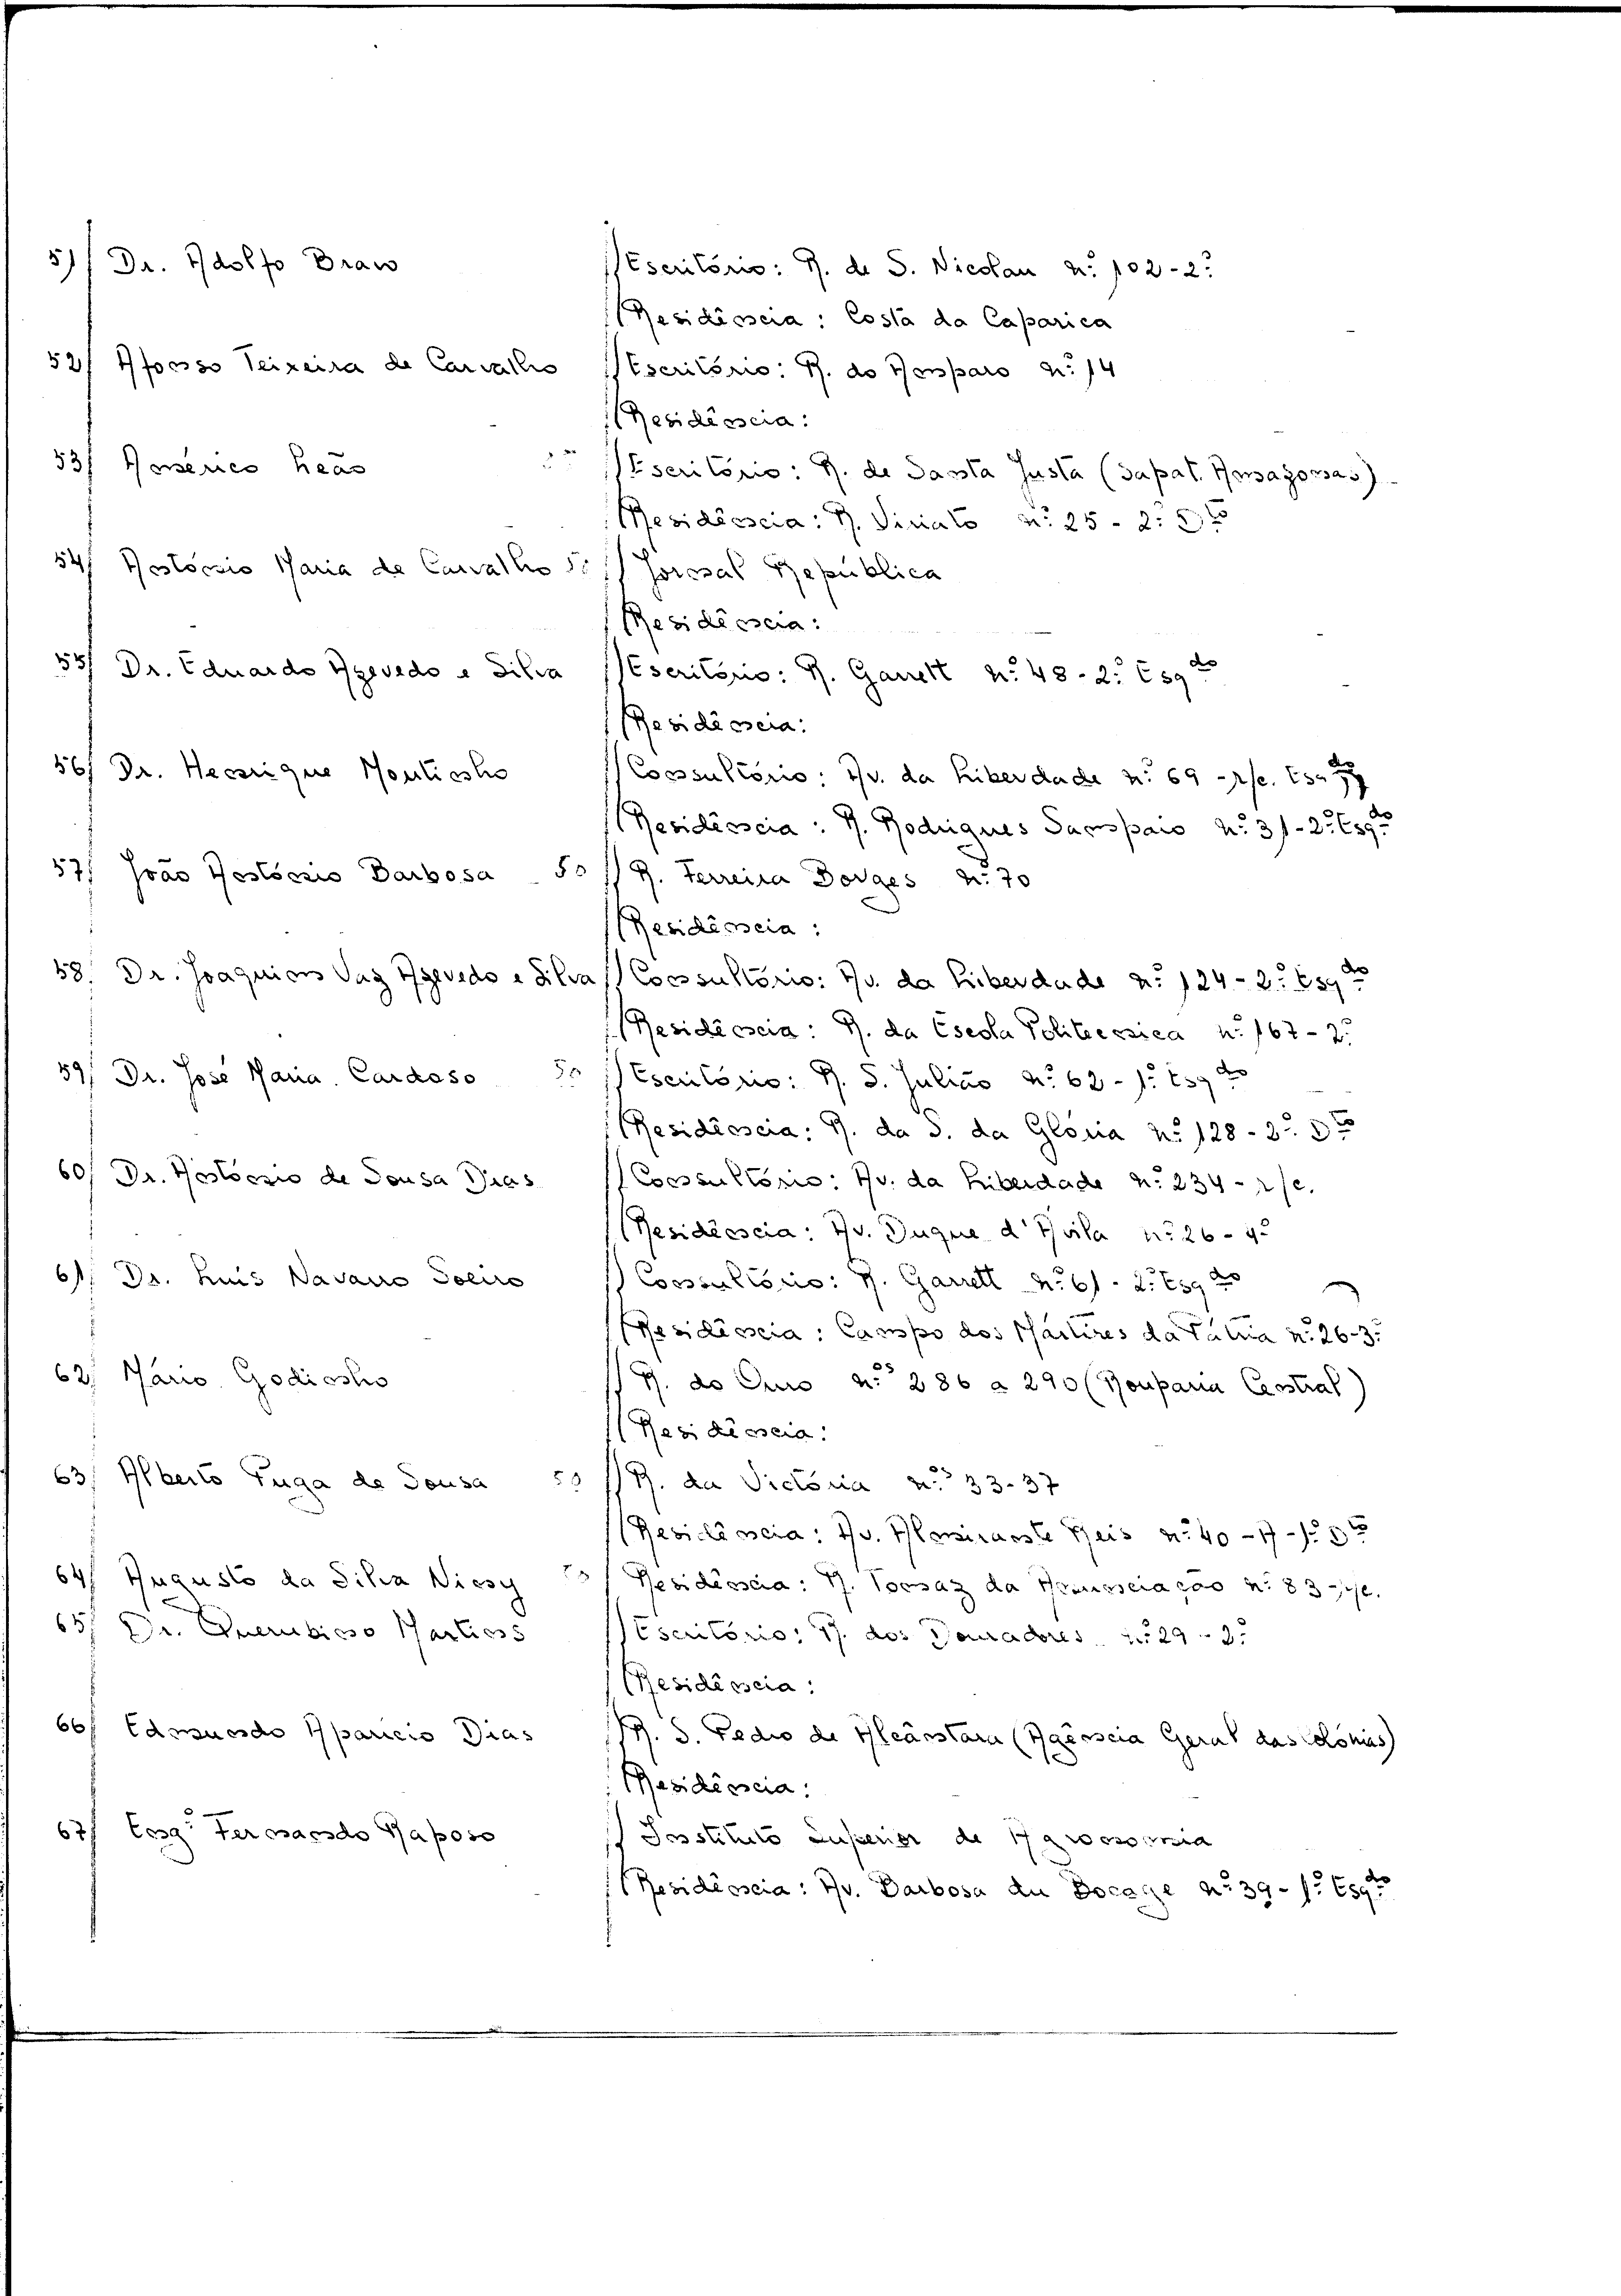 51/ Dr. Adolfo Bravo // Escritório: R. de S. Nicolau n.º 102-2.º
// Residência: Costa da Caparica
52/ Afonso Teixeira de Carvalho // Escritório: R. do Amparo n.º 14
// Residência:
53/ Américo Leão // Escritório: R. de Santa Justa (Sapat. Amazonas)
// Residência: R. Viriato n.º 25 - 2.º Dto
54/ António Maria de Carvalho // Jornal República
// Residência:
55/ Dr. Eduardo Azevedo e Silva // Escritório: R. Garrett n.º 48 - 2.º Esqdo
// Residência:
56/ Dr. Henrique Moutinho // Consultório: Av. da Liberdade n.º 69 - r/c. Esqdo
// Residência: R. Rodrigues Sampaio n.º 31 - 2.º Esqdo
57/ João António Barbosa 50 // R. Ferreira Borges n.º 70
// Residência:
58/ Dr. Joaquim Vaz Azevedo e Silva // Consultório: Av. da Liberdade n.º 124 - 2.º Esqdo
// Residência: R. da Escola Politécnica n.º 167 - 2.º
59/ Dr. José Maria Cardoso 50 // Escritório: R. S. Julião n.º 62 - 1.º Esqdo
// Residência: R. da S. da Glória n.º 128 - 2.º Dto
60/ Dr. António de Sousa Dias // Consultório: Av. da Liberdade n.º 234 - r/c.
// Residência: Av. Duque d'Ávila n.º 26 - 4.º
61/ Dr. Luís Navarro Soeiro // Consultório: R. Garrett n.º 61 - 2.º Esqdo
// Residência: Campo dos Mártires da Pátria n.º 26-3.º
62/ Mário Godinho // R. do Ouro n.os 286 a 290 (Rouparia Central)
// Residência:
63/ Alberto Puga de Sousa 50 // R. da Victória n.os 33-37
// Residência: Av. Almirante Reis n.º 40 - A - 1.º Dto
64/ Augusto da Silva Niny / Residência: R. Tomaz da Anunciação n.º 83 - r/c.
65/ Dr. Querubino Martins // Escritório: R. dos Douradores n.º 29 - 2.º
// Residência:
66/ Edmundo Aparício Dias // R. S. Pedro de Alcântara (Agência Geral das Colónias)
// Residência:
67/ Eng.º Fernando Raposo // Instituto Superior de Agronomia
// Residência: Av. Barbosa du Bocage n.º 39 - 1.º Esqdo